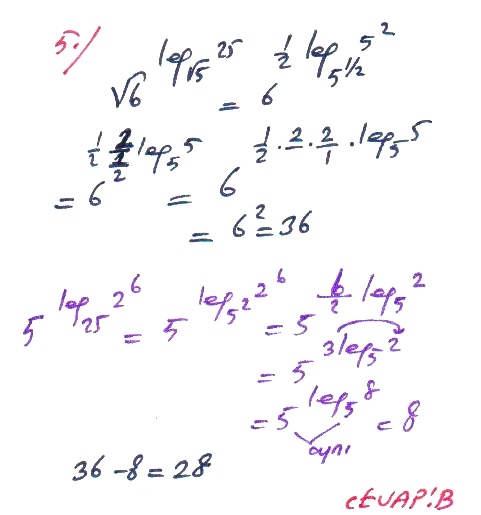 5./ √6^(log_√5 25) = 6^(1/2 log_(5^1/2) 5^2)
= 6^(1/2 · 2/(1/2) log_5 5) = 6^(1/2 · 2 · 2/1 · log_5 5)
= 6^2 = 36
5^(log_25 2^6) = 5^(log_(5^2) 2^6) = 5^(6/2 log_5 2)
= 5^(3 log_5 2)
= 5^(log_5 8) = 8
aynı
36 - 8 = 28
CEVAP: B